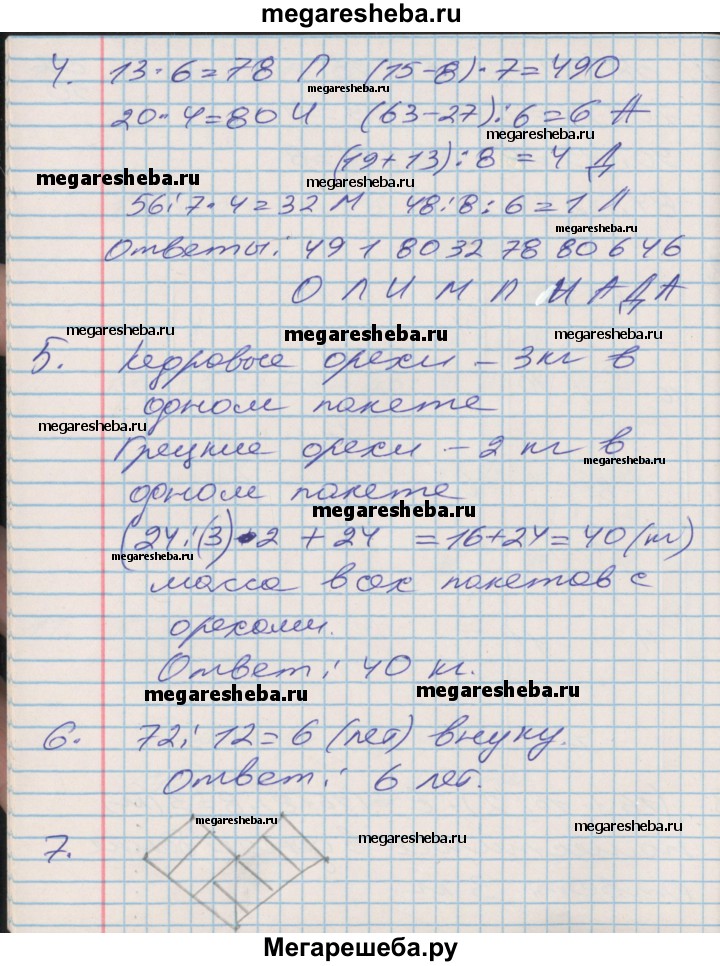 megaresheba.ru
4. 13·6=78 П (15-8)·7=49 О
megaresheba.ru
20·4=80 И (63-27):6=6 А
megaresheba.ru
(19+13):8=4 Д
megaresheba.ru megaresheba.ru
56:7·4=32 М 48:8:6=1 Л
Ответы: 49 1 80 32 78 80 6 4 6
О Л И М П И А Д А
megaresheba.ru megaresheba.ru
5. Кедровые орехи - 3 кг в
одном пакете
megaresheba.ru
Грецкие орехи - 2 кг в
megaresheba.ru
одном пакете
megaresheba.ru
(24:(3)·2 + 24 =16+24=40 (кг)
megaresheba.ru
масса всех пакетов с
орехами.
Ответ: 40 кг.
megaresheba.ru megaresheba.ru
6. 72:12=6 (лет) внуку.
Ответ: 6 лет.
megaresheba.ru megaresheba.ru
7. megaresheba.ru
Мегарешеба.ру